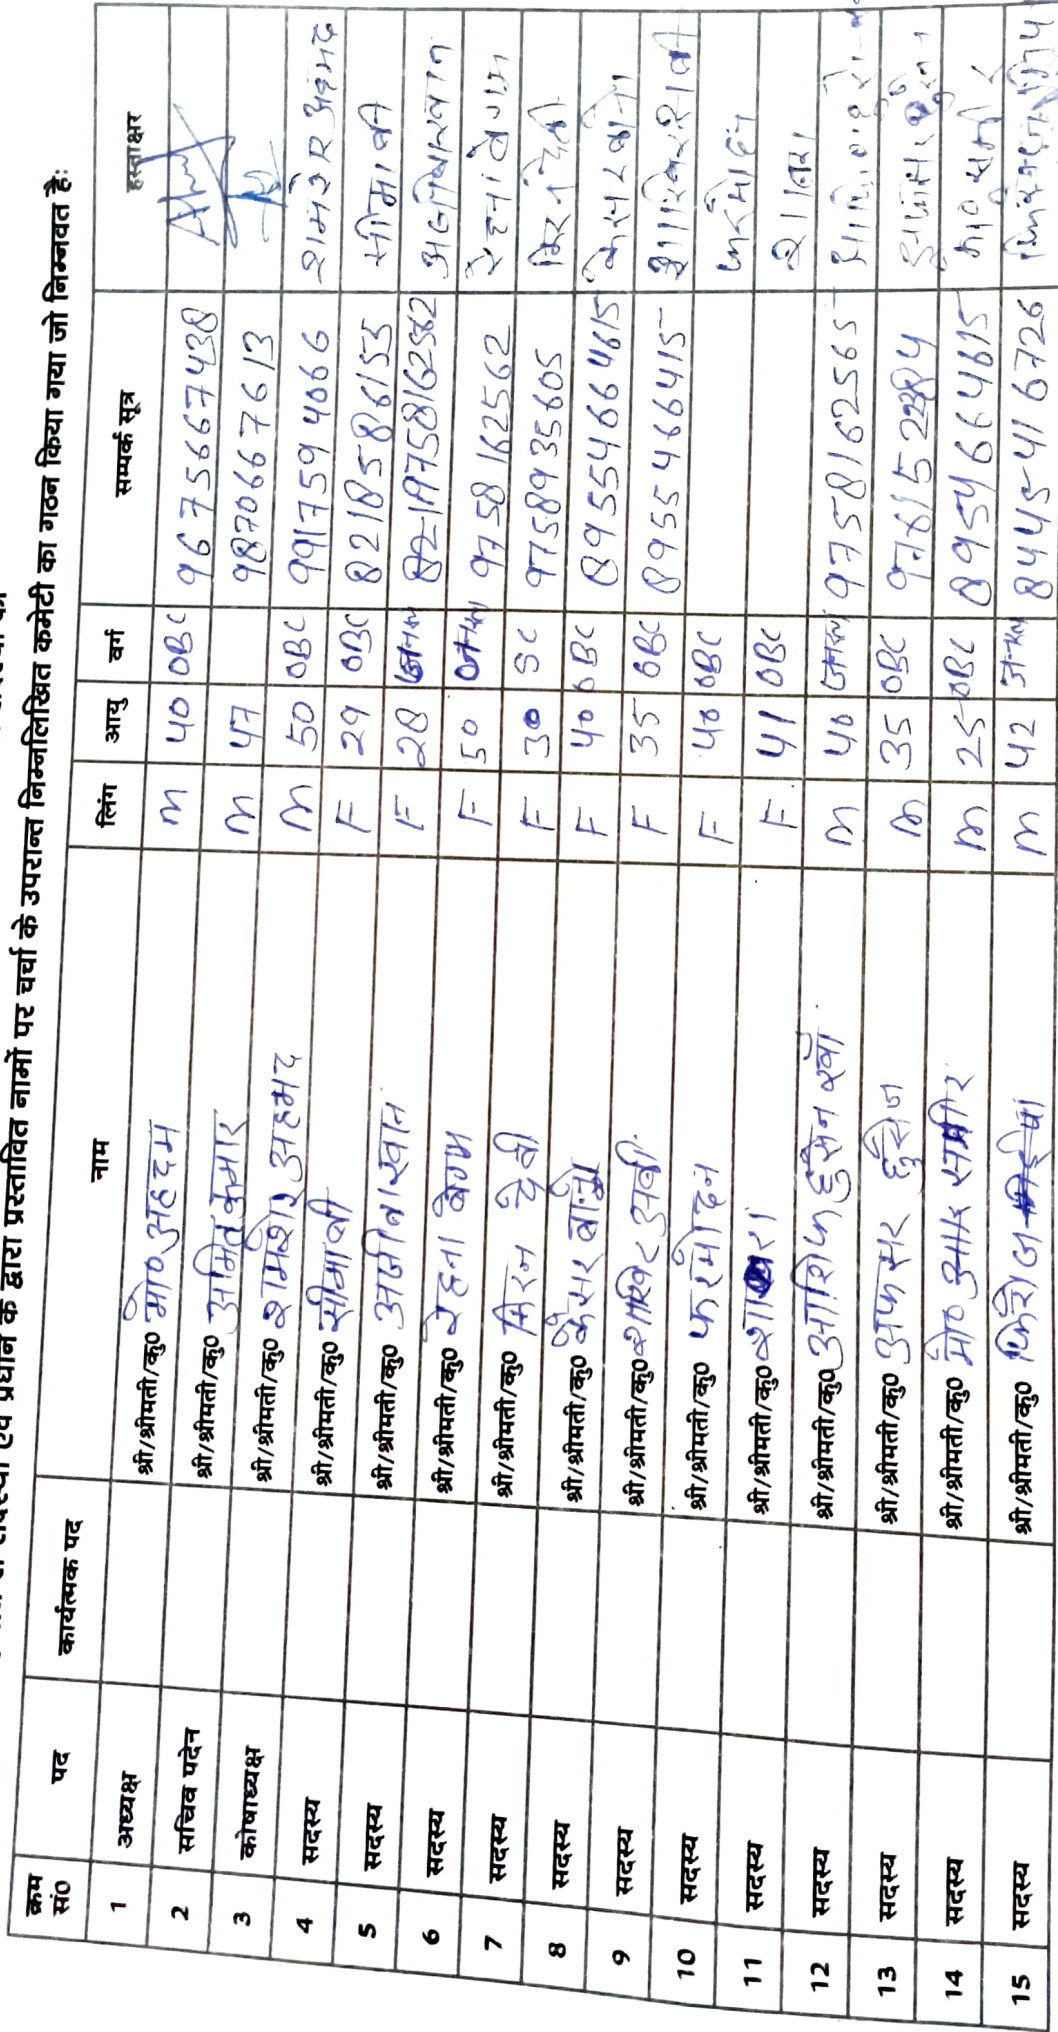 सदस्यों एवं प्रधान के द्वारा प्रस्तावित नामों पर चर्चा के उपरान्त निम्नलिखित कमेटी का गठन किया गया जो निम्नवत है:
क्रम सं0 पद कार्यत्मक पद नाम लिंग आयु वर्ग सम्पर्क सूत्र हस्ताक्षर
1 अध्यक्ष श्री/श्रीमती/कु0 मो0 अहदम M 40 OBC 9675667438
2 सचिव पदेन श्री/श्रीमती/कु0 अमित कुमार M 47 9870667613
3 कोषाध्यक्ष श्री/श्रीमती/कु0 शमशेर अहमद M 50 OBC 9917594066 शमशेर अहमद
4 सदस्य श्री/श्रीमती/कु0 सीमा बी F 29 OBC 8218586153 सीमा बी
5 सदस्य श्री/श्रीमती/कु0 अजीबा खान F 28 9758162562
6 सदस्य श्री/श्रीमती/कु0 रेहना बेगम F 50 9758162562 रेहना बेगम
7 सदस्य श्री/श्रीमती/कु0 मिरन देवी F 30 SC 9758935605
8 सदस्य श्री/श्रीमती/कु0 कैसर बानो F 40 OBC 89555466 4615
9 सदस्य श्री/श्रीमती/कु0 F 35 OBC 8955466415
10 सदस्य श्री/श्रीमती/कु0 फरमोदन F 40 OBC
11 सदस्य श्री/श्रीमती/कु0 F 41 OBC
12 सदस्य श्री/श्रीमती/कु0 आशिफ हुसैन खाँ M 40 9758162565
13 सदस्य श्री/श्रीमती/कु0 अफसर M 35 OBC
14 सदस्य श्री/श्रीमती/कु0 मो0 M 25 OBC 8954664615 मो0 समीर
15 सदस्य श्री/श्रीमती/कु0 M 42 8445416726